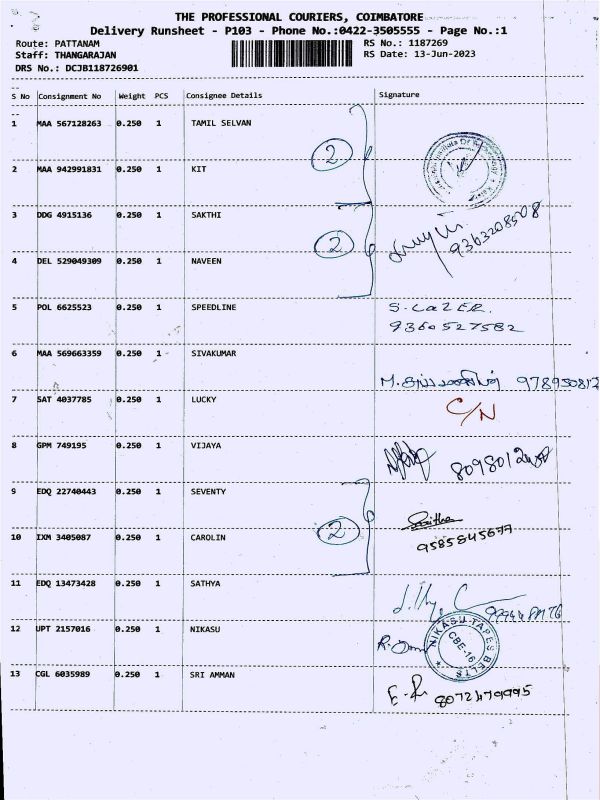 THE PROFESSIONAL COURIERS, COIMBATORE
Delivery Runsheet - P103 - Phone No.:0422-3505555 - Page No.:1
Route: PATTANAM
RS No.: 1187269
Staff: THANGARAJAN
RS Date: 13-Jun-2023
DRS No.: DCJB118726901
S No Consignment No Weight PCS Consignee Details Signature
1 MAA 567128263 0.250 1 TAMIL SELVAN
2
2 MAA 942991831 0.250 1 KIT
3 DDG 4915136 0.250 1 SAKTHI
9363208508
2
4 DEL 529049309 0.250 1 NAVEEN
5 POL 6625523 0.250 1 SPEEDLINE S. LAZER.
9360527582
6 MAA 569663359 0.250 1 SIVAKUMAR
M. 978950812
7 SAT 4037785 0.250 1 LUCKY C/N
8 GPM 749195 0.250 1 VIJAYA
9 EDQ 22740443 0.250 1 SEVENTY
2
10 IXM 3405087 0.250 1 CAROLIN 9585845677
11 EDQ 13473428 0.250 1 SATHYA
12 UPT 2157016 0.250 1 NIKASU
NIKASU TAPES BELTS
CBE-16
13 CGL 6035989 0.250 1 SRI AMMAN
8072479995